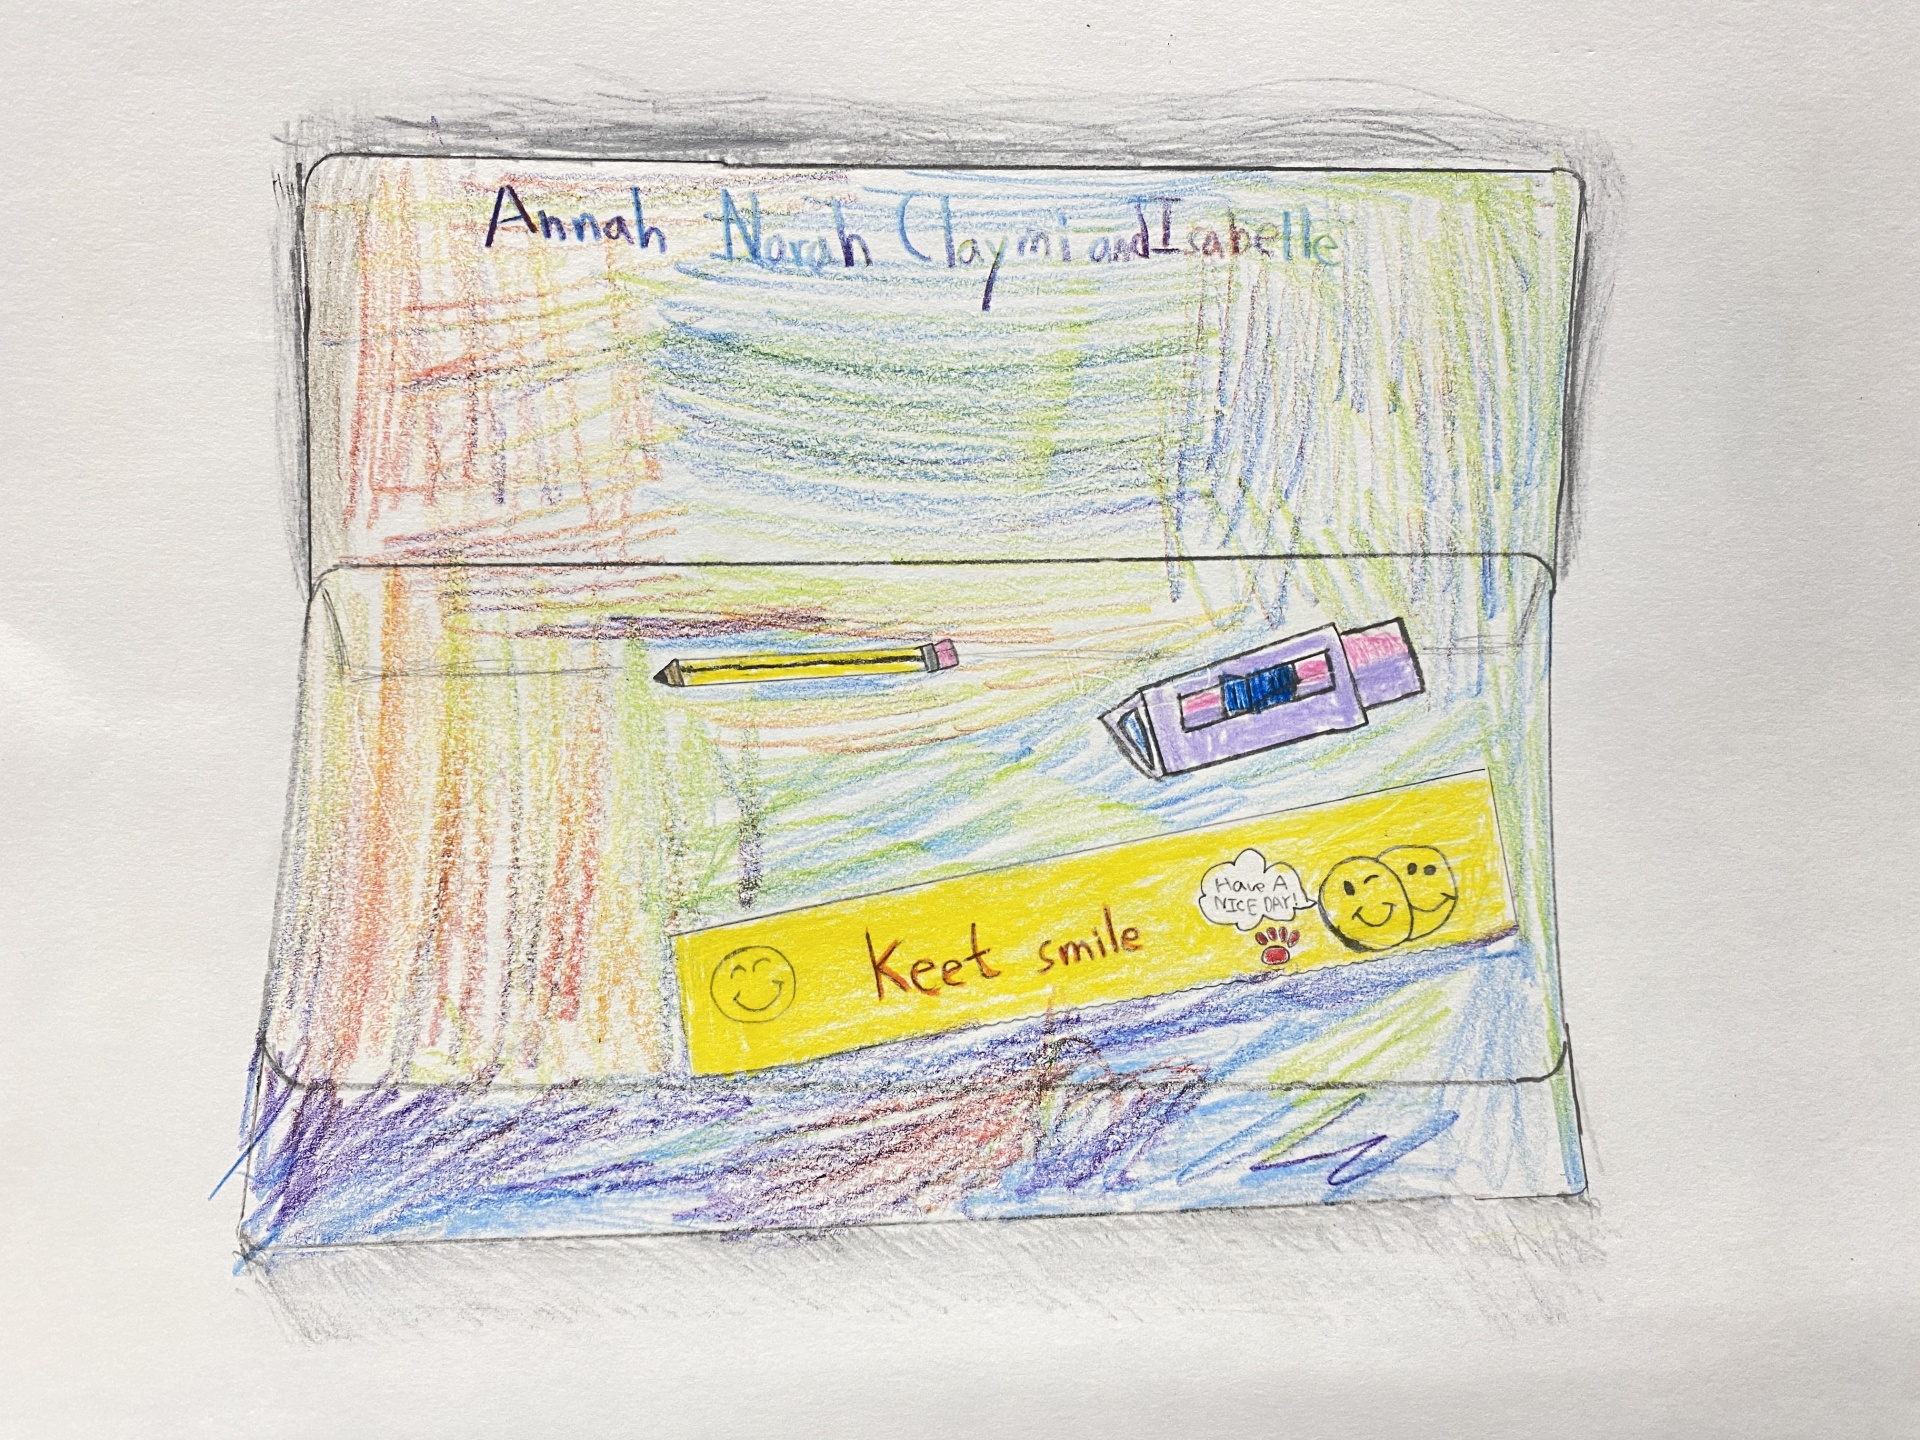 Annah Norah Claymi and Isabelle
Have A
NICE DAY!
Keet smile